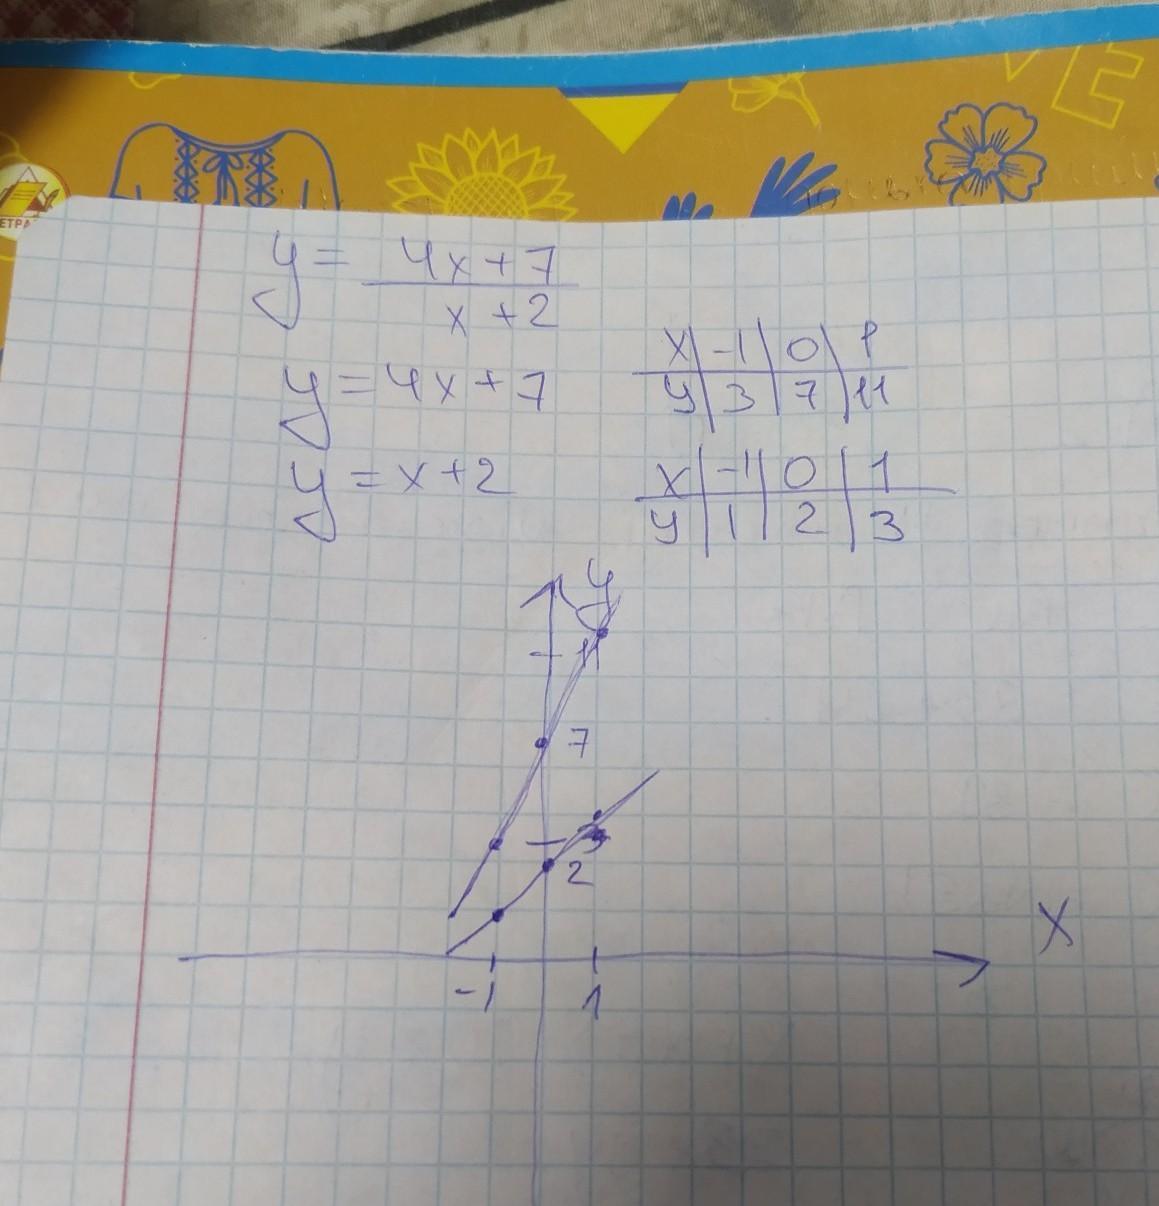 ETPA
y = 4x+7
x +2
y = 4x + 7
x -1 0 1
y 3 7 11
y = x+2
x -1 0 1
y 1 2 3
y
11
7
3
2
x
-1 1